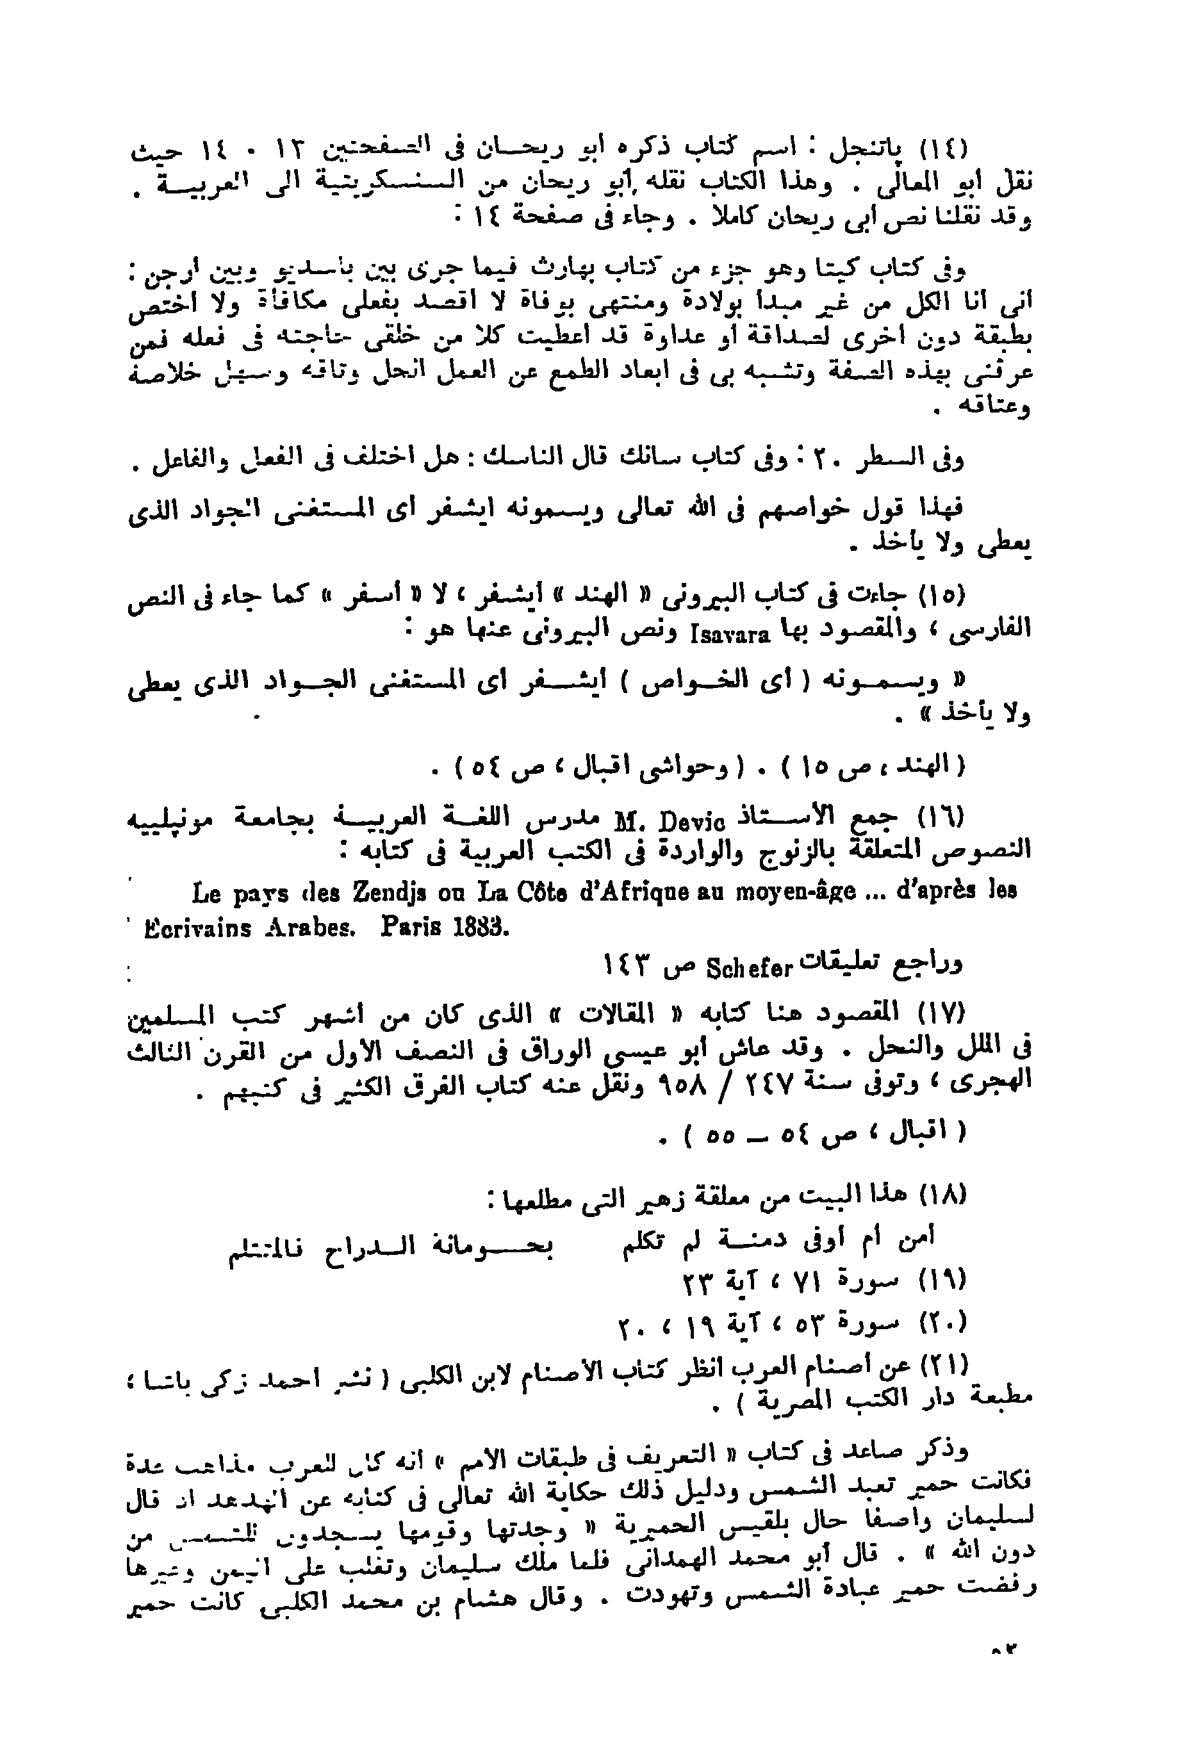 (١٤) پاتنجل : اسم كتاب ذكره أبو ريحــان فى الصفحتين ١٣ ٠ ١٤ حيث
نقل أبو المعالى . وهذا الكتاب نقله أبو ريحان من السنسكريتية الى العربيــة .
وقد نقلنا نص أبى ريحان كاملا . وجاء فى صفحة ١٤ :
وفى كتاب كيتا وهو جزء من كتاب بهارث فيما جرى بين باسديو وبين أرجن :
أنى أنا الكل من غير مبدأ بولادة ومنتهى بوفاة لا أقصد بفعلى مكافأة ولا أختص
بطبقة دون أخرى لصداقة أو عداوة قد أعطيت كلا من خلقى حاجته فى فعله فمن
عرفنى بهذه الصفة وتشبه بى فى ابعاد الطمع عن العمل انحل وثاقه وسهل خلاصه
وعتاقه .
وفى السطر ٢٠ : وفى كتاب سانك قال الناسك : هل اختلف فى الفعل والفاعل .
فهذا قول خواصهم فى الله تعالى ويسمونه ايشفر أى المستغنى الجواد الذى
يعطى ولا يأخذ .
(١٥) جاءت فى كتاب البيرونى « الهند » أيشفر ، لا « أسفر » كما جاء فى النص
الفارسى ، والمقصود بها Isavara ونص البيرونى عنها هو :
« ويسمونه ( أى الخواص ) أيشــفر أى المستغنى الجــواد الذى يعطى
ولا يأخذ » .
( الهند ، ص ١٥ ) . ( وحواشى اقبال ، ص ٥٤ ) .
(١٦) جمع الأستاذ M. Devic مدرس اللغــة العربيــة بجامعة مونپلييه
النصوص المتعلقة بالزنوج والواردة فى الكتب العربية فى كتابه :
Le pays des Zendjs ou La Côte d'Afrique au moyen-âge ... d'après les
Ecrivains Arabes. Paris 1883.
وراجع تعليقات Schefer ص ١٤٣
(١٧) المقصود هنا كتابه « المقالات » الذى كان من أشهر كتب المسلمين
فى الملل والنحل . وقد عاش أبو عيسى الوراق فى النصف الأول من القرن الثالث
الهجرى ، وتوفى سنة ٢٤٧ / ٩٥٨ ونقل عنه كتاب الفرق الكثير فى كتبهم .
( اقبال ، ص ٥٤ — ٥٥ ) .
(١٨) هذا البيت من معلقة زهير التى مطلعها :
أمن أم أوفى دمنــة لم تكلم بحــومانة الــدراج فالمتثلم
(١٩) سورة ٧١ ، آية ٢٣
(٢٠) سورة ٥٣ ، آية ١٩ ، ٢٠
(٢١) عن أصنام العرب انظر كتاب الأصنام لابن الكلبى ( نشر أحمد زكى باشا ،
مطبعة دار الكتب المصرية ) .
وذكر صاعد فى كتاب « التعريف فى طبقات الأمم » أنه كان للعرب مذاهب عدة
فكانت حمير تعبد الشمس ودليل ذلك حكاية الله تعالى فى كتابه عن الهدهد اذ قال
لسليمان واصفا حال بلقيس الحميرية « وجدتها وقومها يسجدون للشمس من
دون الله » . قال أبو محمد الهمدانى فلما ملك سليمان وتغلب على اليمن وغيرها
رفضت حمير عبادة الشمس وتهودت . وقال هشام بن محمد الكلبى كانت حمير